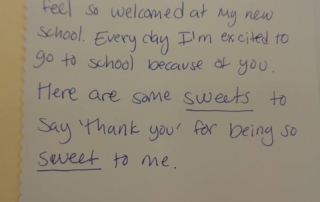 feel so welcomed at my new
school. Every day I'm excited to
go to school because of you.
Here are some sweets to
say 'thank you' for being so
sweet to me.